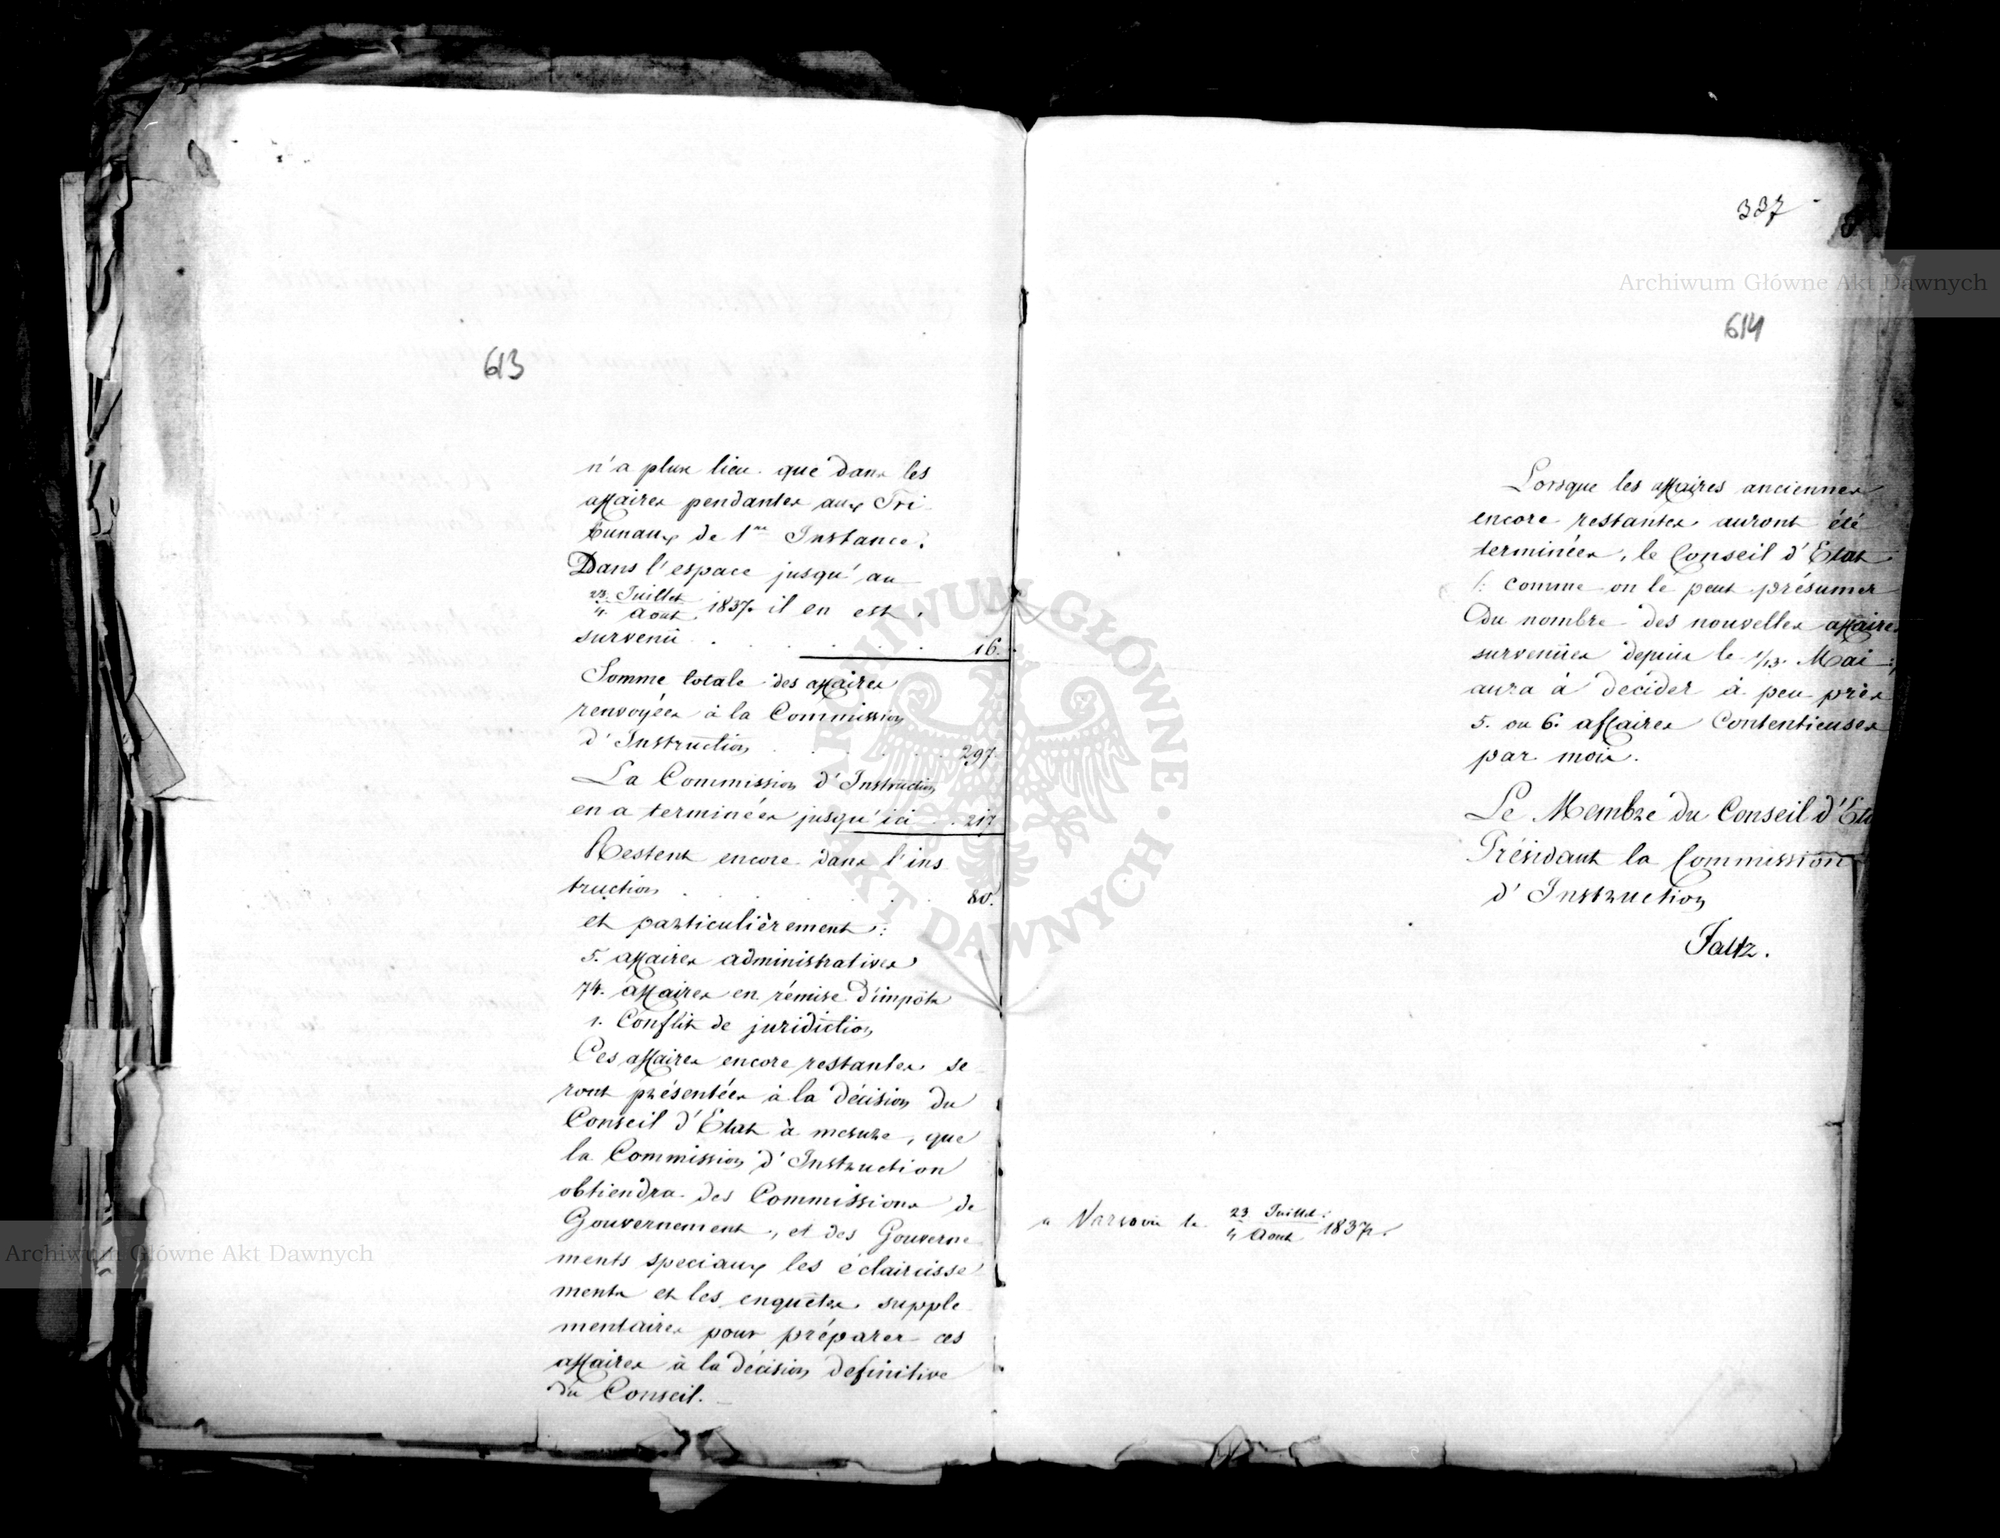 613
n'a plus lieu que dans les
affaires pendantes aux Tri
bunaux de 1re Instance.
Dans l'espace jusqu'au
23 Juillet
4 Aout 1837 il en est
survenu . . . . . 16.
Somme totale des affaires
renvoyées à la Commission
d'Instruction . . . . 297.
La Commission d'Instruction
en a terminées jusqu'ici . . 217
Restent encore dans l'ins
truction . . . . . . 80.
et particulièrement:
5. affaires administratives
74. affaires en rémise d'impôts
1. Conflit de juridiction
Ces affaires encore restantes se
ront présentées à la décision du
Conseil d'Etat à mesure, que
la Commission d'Instruction
obtiendra des Commissions de
Gouvernement, et des Gouverne
ments speciaux les éclaircisse
ments et les enquêtes supple
mentaires pour préparer ces
affaires à la décision definitive
du Conseil.
337
614
Lorsque les affaires anciennes
encore restantes auront été
terminées, le Conseil d'Etat
/: comme on le peut présumer
du nombre des nouvelles affaires
survenües depuis le 1/13. Mai :/
aura à decider à peu près
5. ou 6. affaires Contentieuses
par mois.
Le Membre du Conseil d'Eta
Présidant la Commission
d'Instruction
Faltz.
a Varsovie le 23 Juillet
4 Aout 1837.
Archiwum Główne Akt Dawnych
Archiwum Główne Akt Dawnych
ARCHIWUM GŁÓWNE AKT DAWNYCH